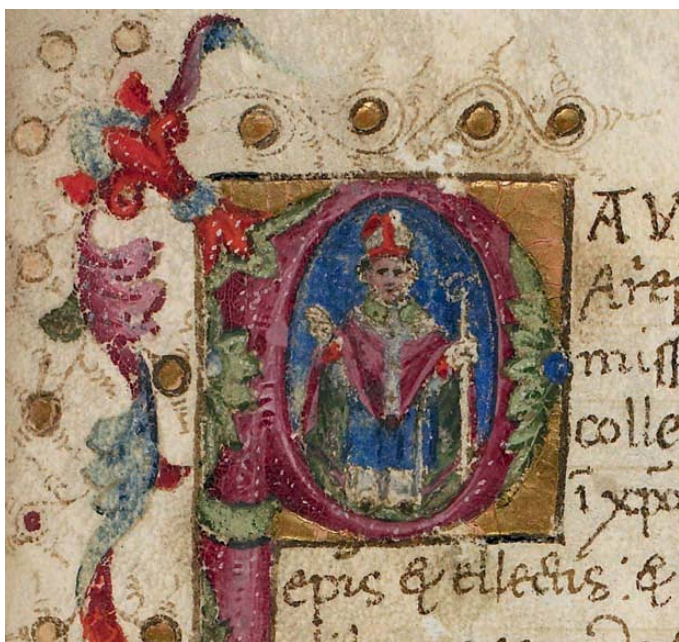 PAV
Arep
miss
colle
ī xp̄o
ep̄is & dilectis : &